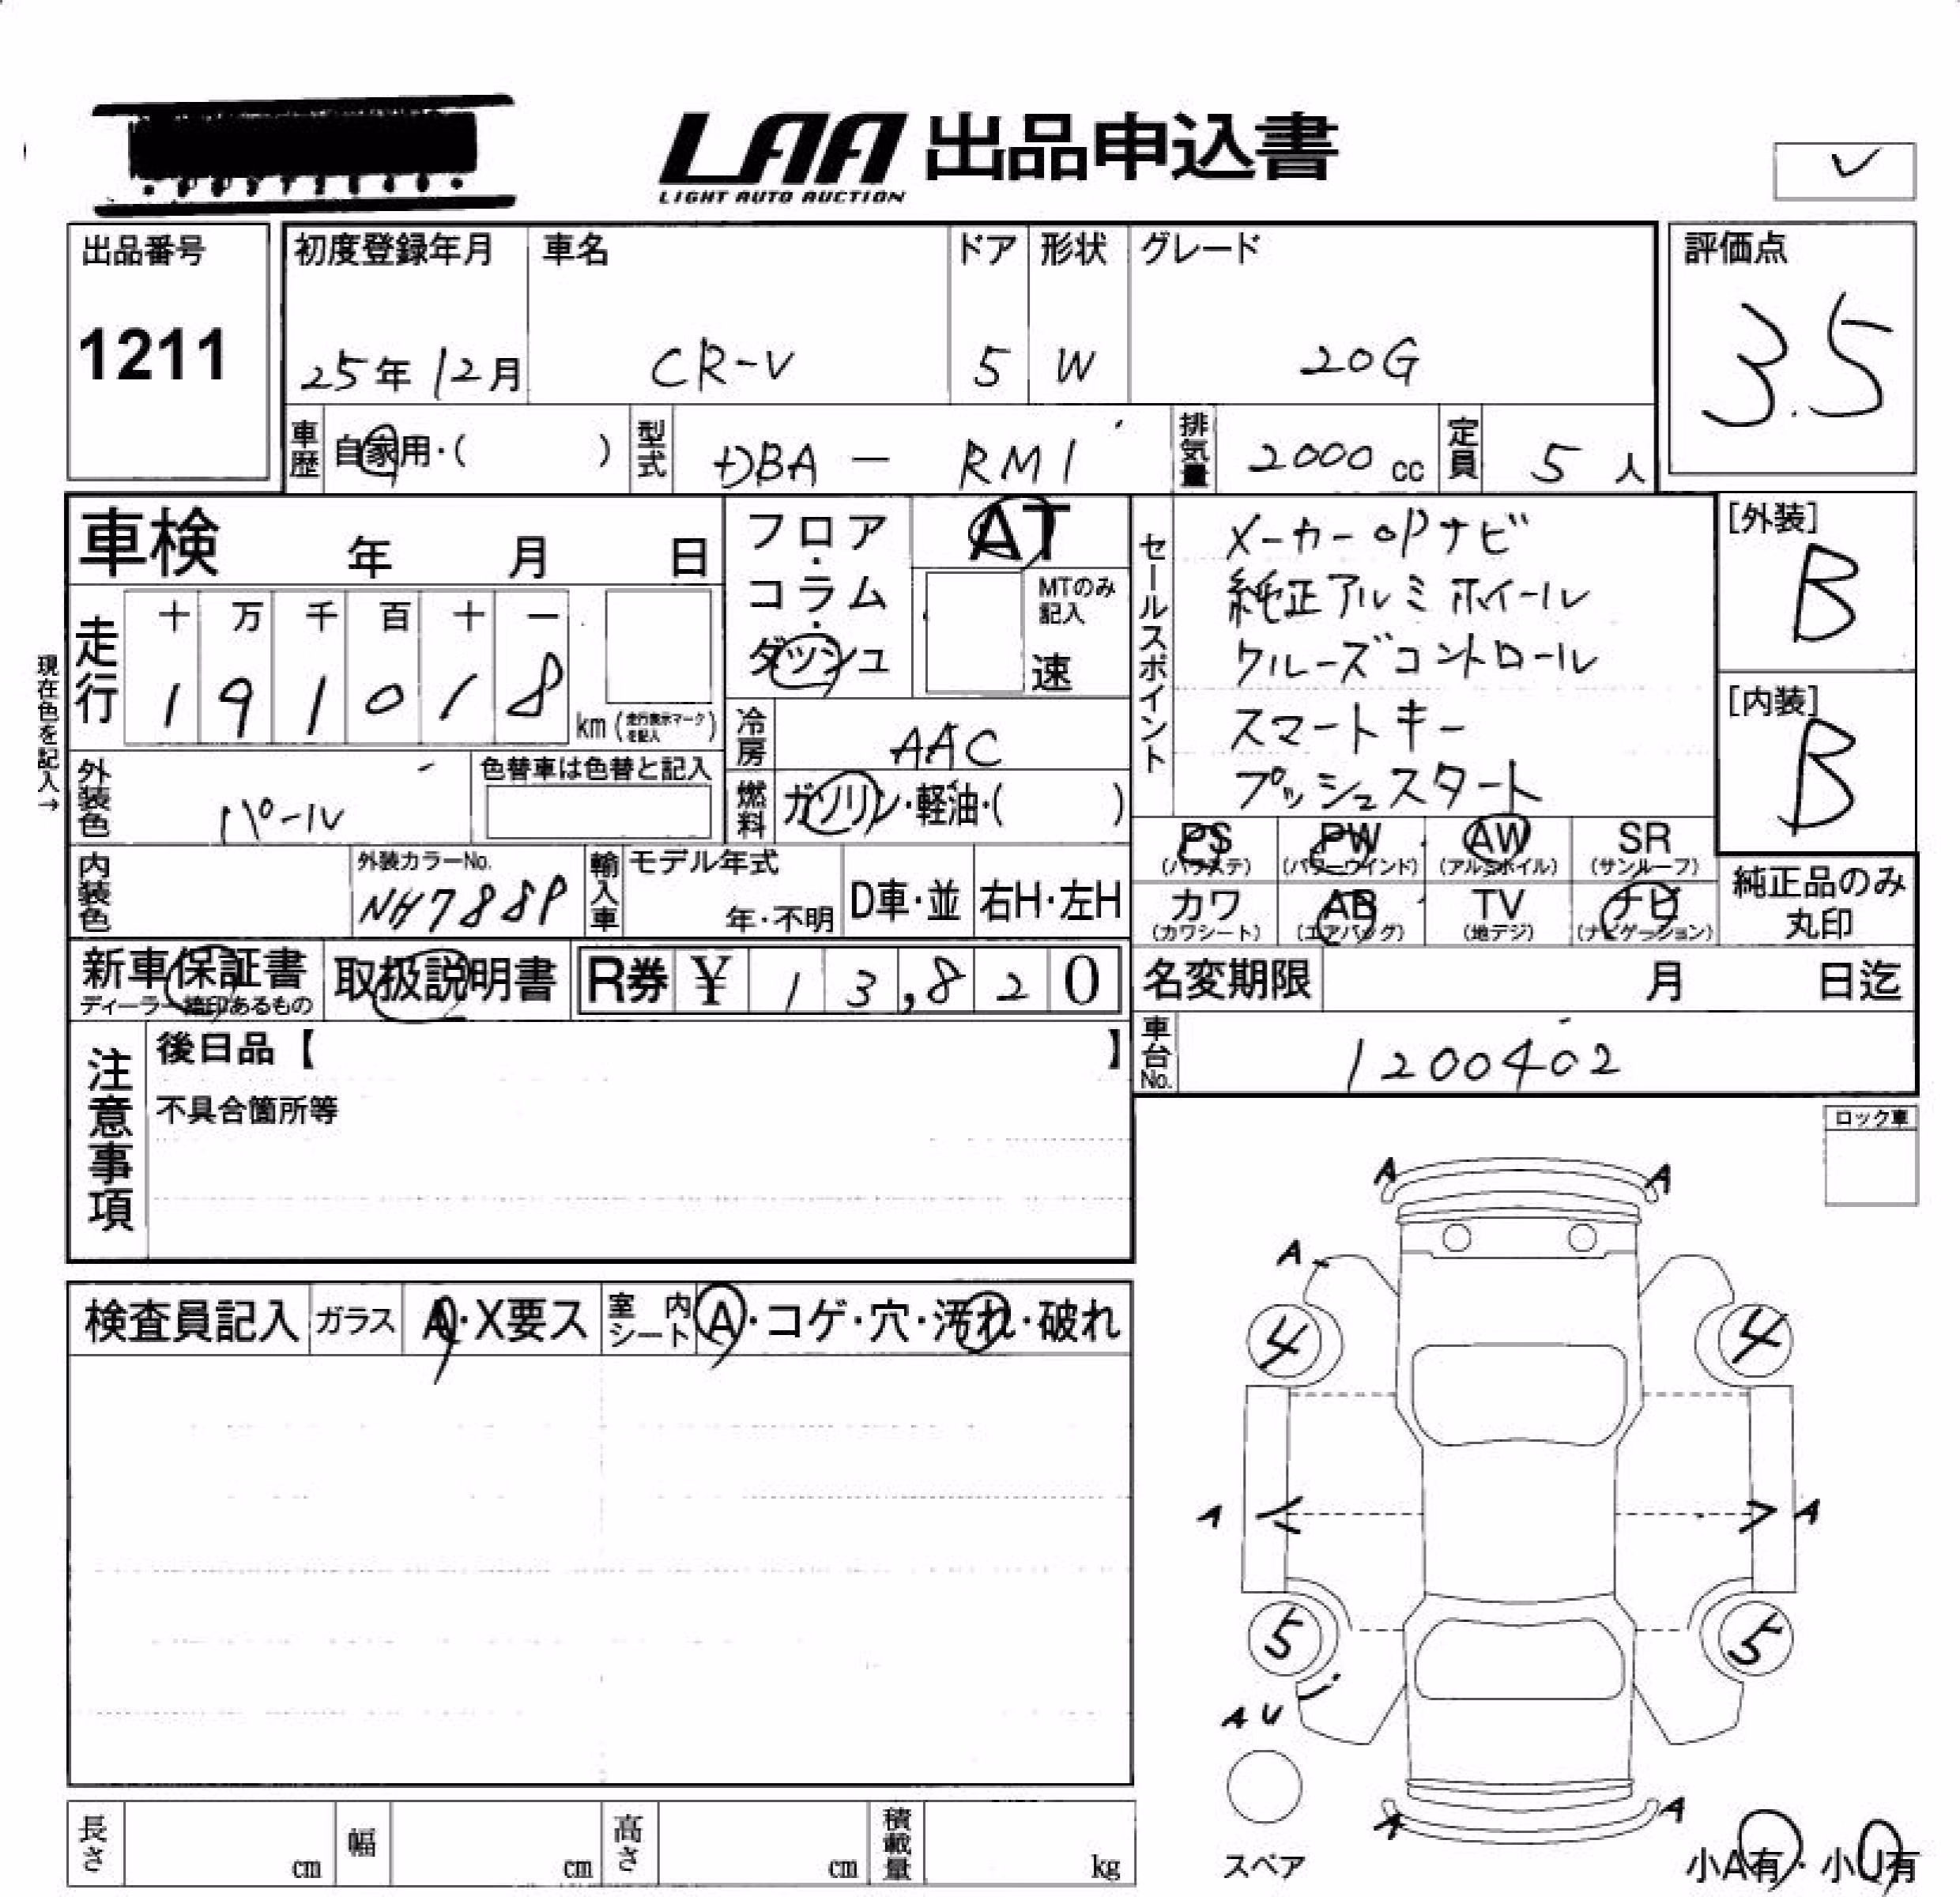 LAA 出品申込書
LIGHT AUTO AUCTION
出品番号
1211
初度登録年月
25年12月
車名
CR-V
ドア
5
形状
W
グレード
20G
評価点
3.5
車歴
自家用・( )
型式
DBA - RM1
排気量
2000 cc
定員
5 人
車検 年 月 日
現在色を記入→
走行
十 万 千 百 十 一
1 9 1 0 1 8
km (走行表示マークを記入)
フロア・
コラム・
ダッシュ
AT
MTのみ
記入
速
冷房
AAC
燃料
ガソリン・軽油・( )
セールスポイント
メーカーOPナビ
純正アルミホイール
クルーズコントロール
スマートキー
プッシュスタート
[外装]
B
[内装]
B
外装色
パール
色替車は色替と記入
内装色
外装カラーNo.
NH788P
輸入車
モデル年式
年・不明
D車・並
右H・左H
PS
(パワステ)
PW
(パワーウインド)
AW
(アルミホイル)
SR
(サンルーフ)
カワ
(カワシート)
AB
(エアバッグ)
TV
(地デジ)
ナビ
(ナビゲーション)
純正品のみ
丸印
新車保証書
ディーラー捺印あるもの
取扱説明書
R券 ¥ 1 3,8 2 0
名変期限 月 日迄
車台No.
1200402
注意事項
後日品【 】
不具合箇所等
ロック車
検査員記入
ガラス
A・X要ス
室内
シート
A・コゲ・穴・汚れ・破れ
A A
A
4 4
A A
5 5
A U
A A
スペア
小A有・小U有
長さ cm
幅 cm
高さ cm
積載量 kg